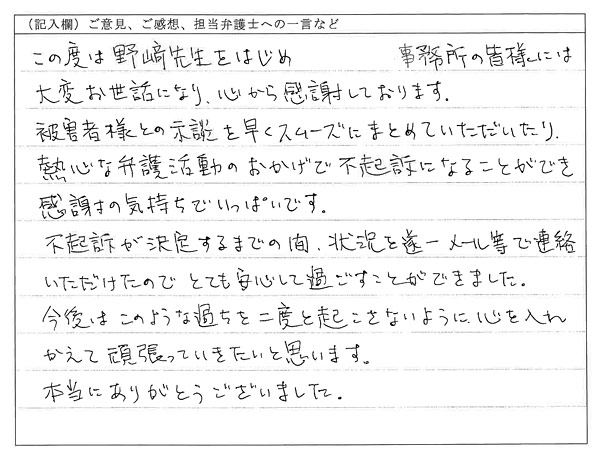 （記入欄）ご意見、ご感想、担当弁護士への一言など
この度は野﨑先生をはじめ　　　　事務所の皆様には
大変お世話になり、心から感謝しております。
被害者様との示談を早くスムーズにまとめていただいたり、
熱心な弁護活動のおかげで不起訴になることができ
感謝の気持ちでいっぱいです。
不起訴が決定するまでの間、状況を逐一メール等で連絡
いただけたのでとても安心して過ごすことができました。
今後はこのような過ちを二度と起こさないように、心を入れ
かえて頑張っていきたいと思います。
本当にありがとうございました。